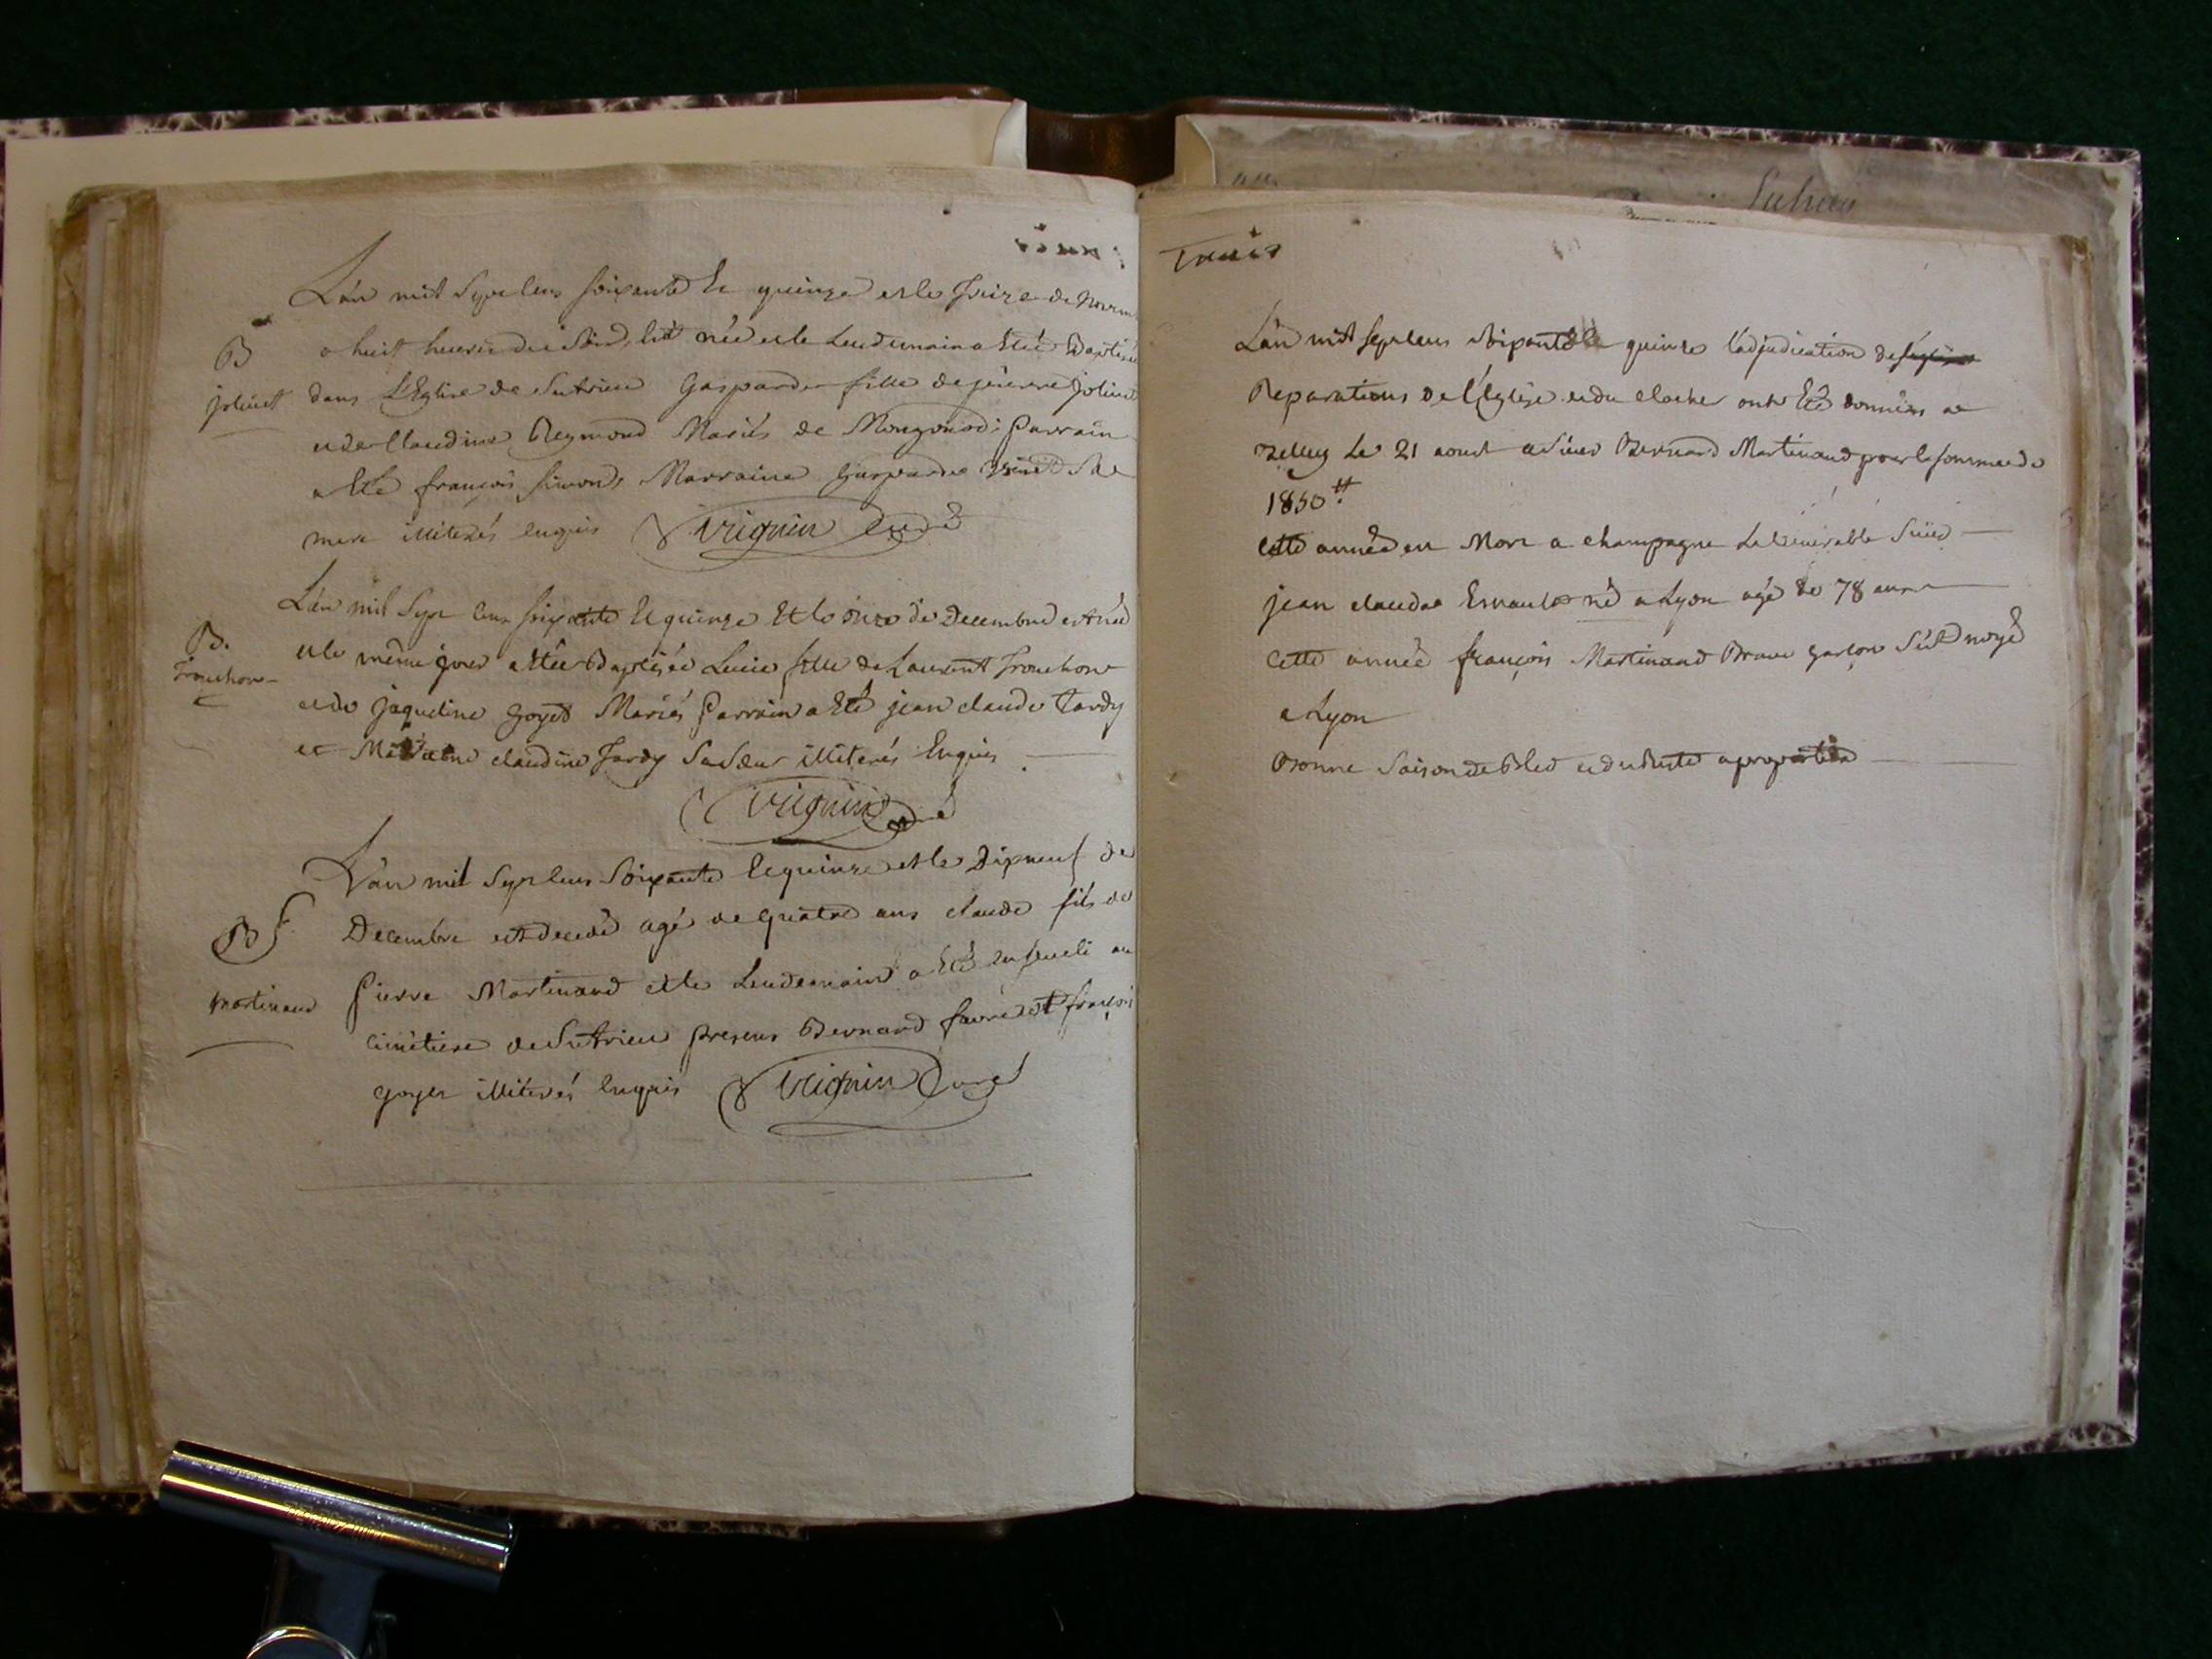 L'an mil Sept cens soixante et quinze et le treize de Novem
B
a huit heures du Soir, est née et le Lendemain a Eté Baptisée
joliuet
dans L'Eglise de Sutrieu Gasparde fille de pierre joliuet
et de Claudine Reymond Mariés de Mongonod: Parrain
a Eté françois Simond, Marraine Gasparde
mere illiterés enquis Vrignin Curé
L'an mil Sept cens soixante Et quinze Et le onze de Decembre est née
B.
et le même jour a Etée Baptisée Lucie fille de Laurent Trouchon
Trouchon
et de jaqueline Goyet Mariés Parrain a Eté jean claude Tardy
et Marraine claudine Tardy Sa Sœur illiterés Enquis.
Vrignin curé
L'an mil Sept cens Soixante et quinze et le Dixneuf de
B S
Decembre est decedé agé de quatre ans claude fils de
martinand
Pierre Martinand et le Lendemain a Eté enseveli au
cimetiere de Sutrieu presens Bernard favre et françois
goyet illiterés enquis Vrignin Curé
L'an mil sept cens soixante et quinze l'adjudication des
Reparations de l'Eglise et du clocher ont Eté données a
Belley Le 21 aoust a Sieur Bernard Martinand pour la somme de
1850 ₶.
Cette année est Mort a champagne Le Venerable Sieur
jean claude né a Lyon agé de 78 ans
Cette année françois Martinand Brave garçon s'est noyé
a Lyon
Bonne Saison de Bled et du Reste a proportion